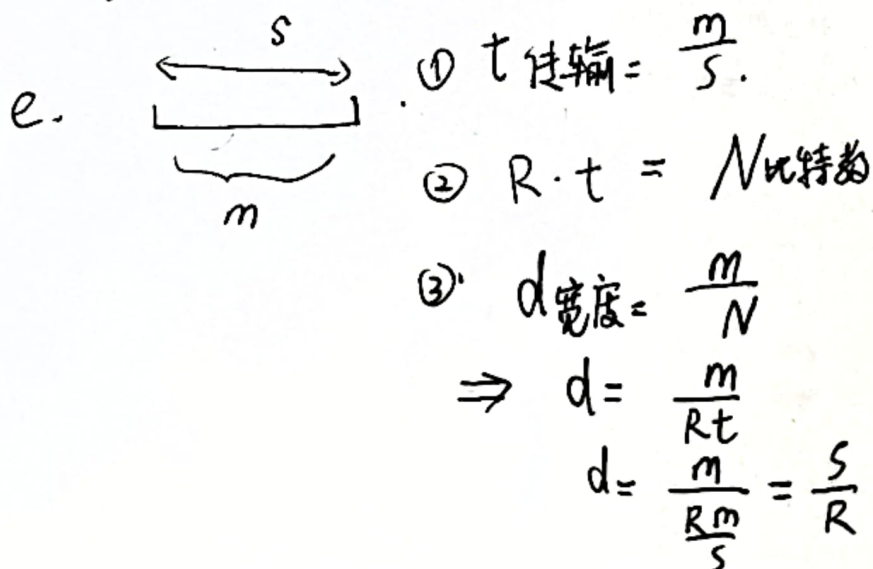 s
e.
m
① t传输 = m/s.
② R·t = N比特数
③ d宽度 = m/N
⇒ d = m/Rt
d = m/(Rm/s) = s/R